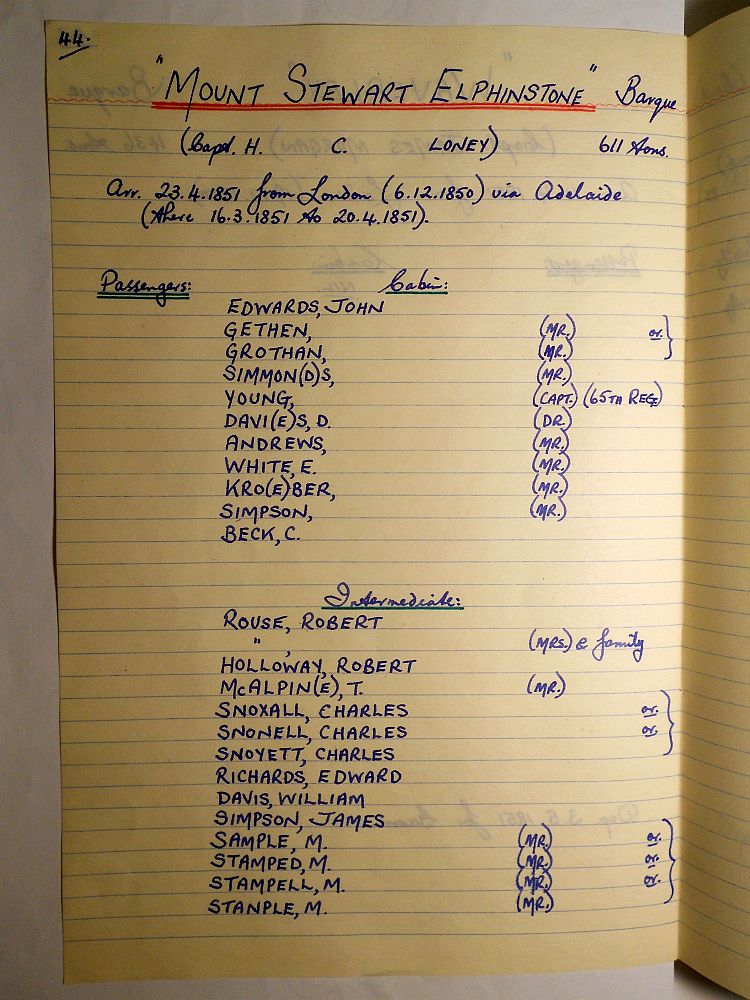 44.
"MOUNT STEWART ELPHINSTONE" Barque
(Capt. H. C. LONEY) 611 tons.
Arr. 23.4.1851 from London (6.12.1850) via Adelaide
(there 16.3.1851 to 20.4.1851).
Passengers: Cabin:
EDWARDS, JOHN
GETHEN, (MR.) or.
GROTHAN, (MR.)
SIMMON(D)S, (MR.)
YOUNG, (CAPT.) (65TH REG.)
DAVI(E)S, D. (DR.)
ANDREWS, (MR.)
WHITE, E. (MR.)
KRO(E)BER, (MR.)
SIMPSON, (MR.)
BECK, C.
Intermediate:
ROUSE, ROBERT
" , (MRS.) & family
HOLLOWAY, ROBERT
McALPIN(E), T. (MR.)
SNOXALL, CHARLES or.
SNONELL, CHARLES or.
SNOYETT, CHARLES
RICHARDS, EDWARD
DAVIS, WILLIAM
SIMPSON, JAMES
SAMPLE, M. (MR.) or.
STAMPED, M. (MR.) or.
STAMPELL, M. (MR.) or.
STANPLE, M. (MR.)